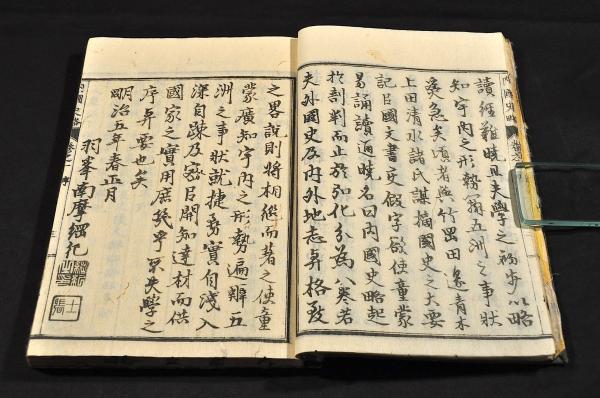 讀經難曉且夫學之初步以略
知宇內之形勢五洲之事狀
爲急矣頃者與竹岡田邊青木
上田清水諸氏謀摘國史之大要
記以國文書交假字欲使童蒙
易誦讀通曉名曰內國史略起
於剖判而止於弘化分爲八卷若
夫外國史及內外地志與格致
之畧說則將相繼而著之使童
蒙廣知宇內之形勢遍辨五
洲之事狀就捷易實自淺入
深自疎及密以開知達材而供
國家之實用庶幾乎不失學之
序與要也矣
明治五年春正月
羽峯南摩綱紀
內國史略 卷之一 序